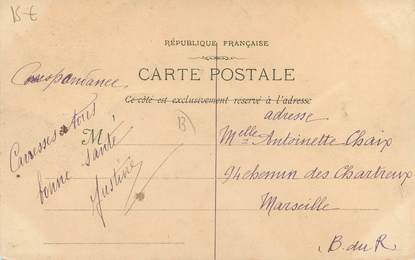 15 €
RÉPUBLIQUE FRANÇAISE
CARTE POSTALE
Ce côté est exclusivement réservé à l'adresse
Correspondance
adresse
Caresses à tous
bonne santé
Justine
M
B
Melle Antoinette Chaix
94 chemin des Chartreux
Marseille
B. du R.